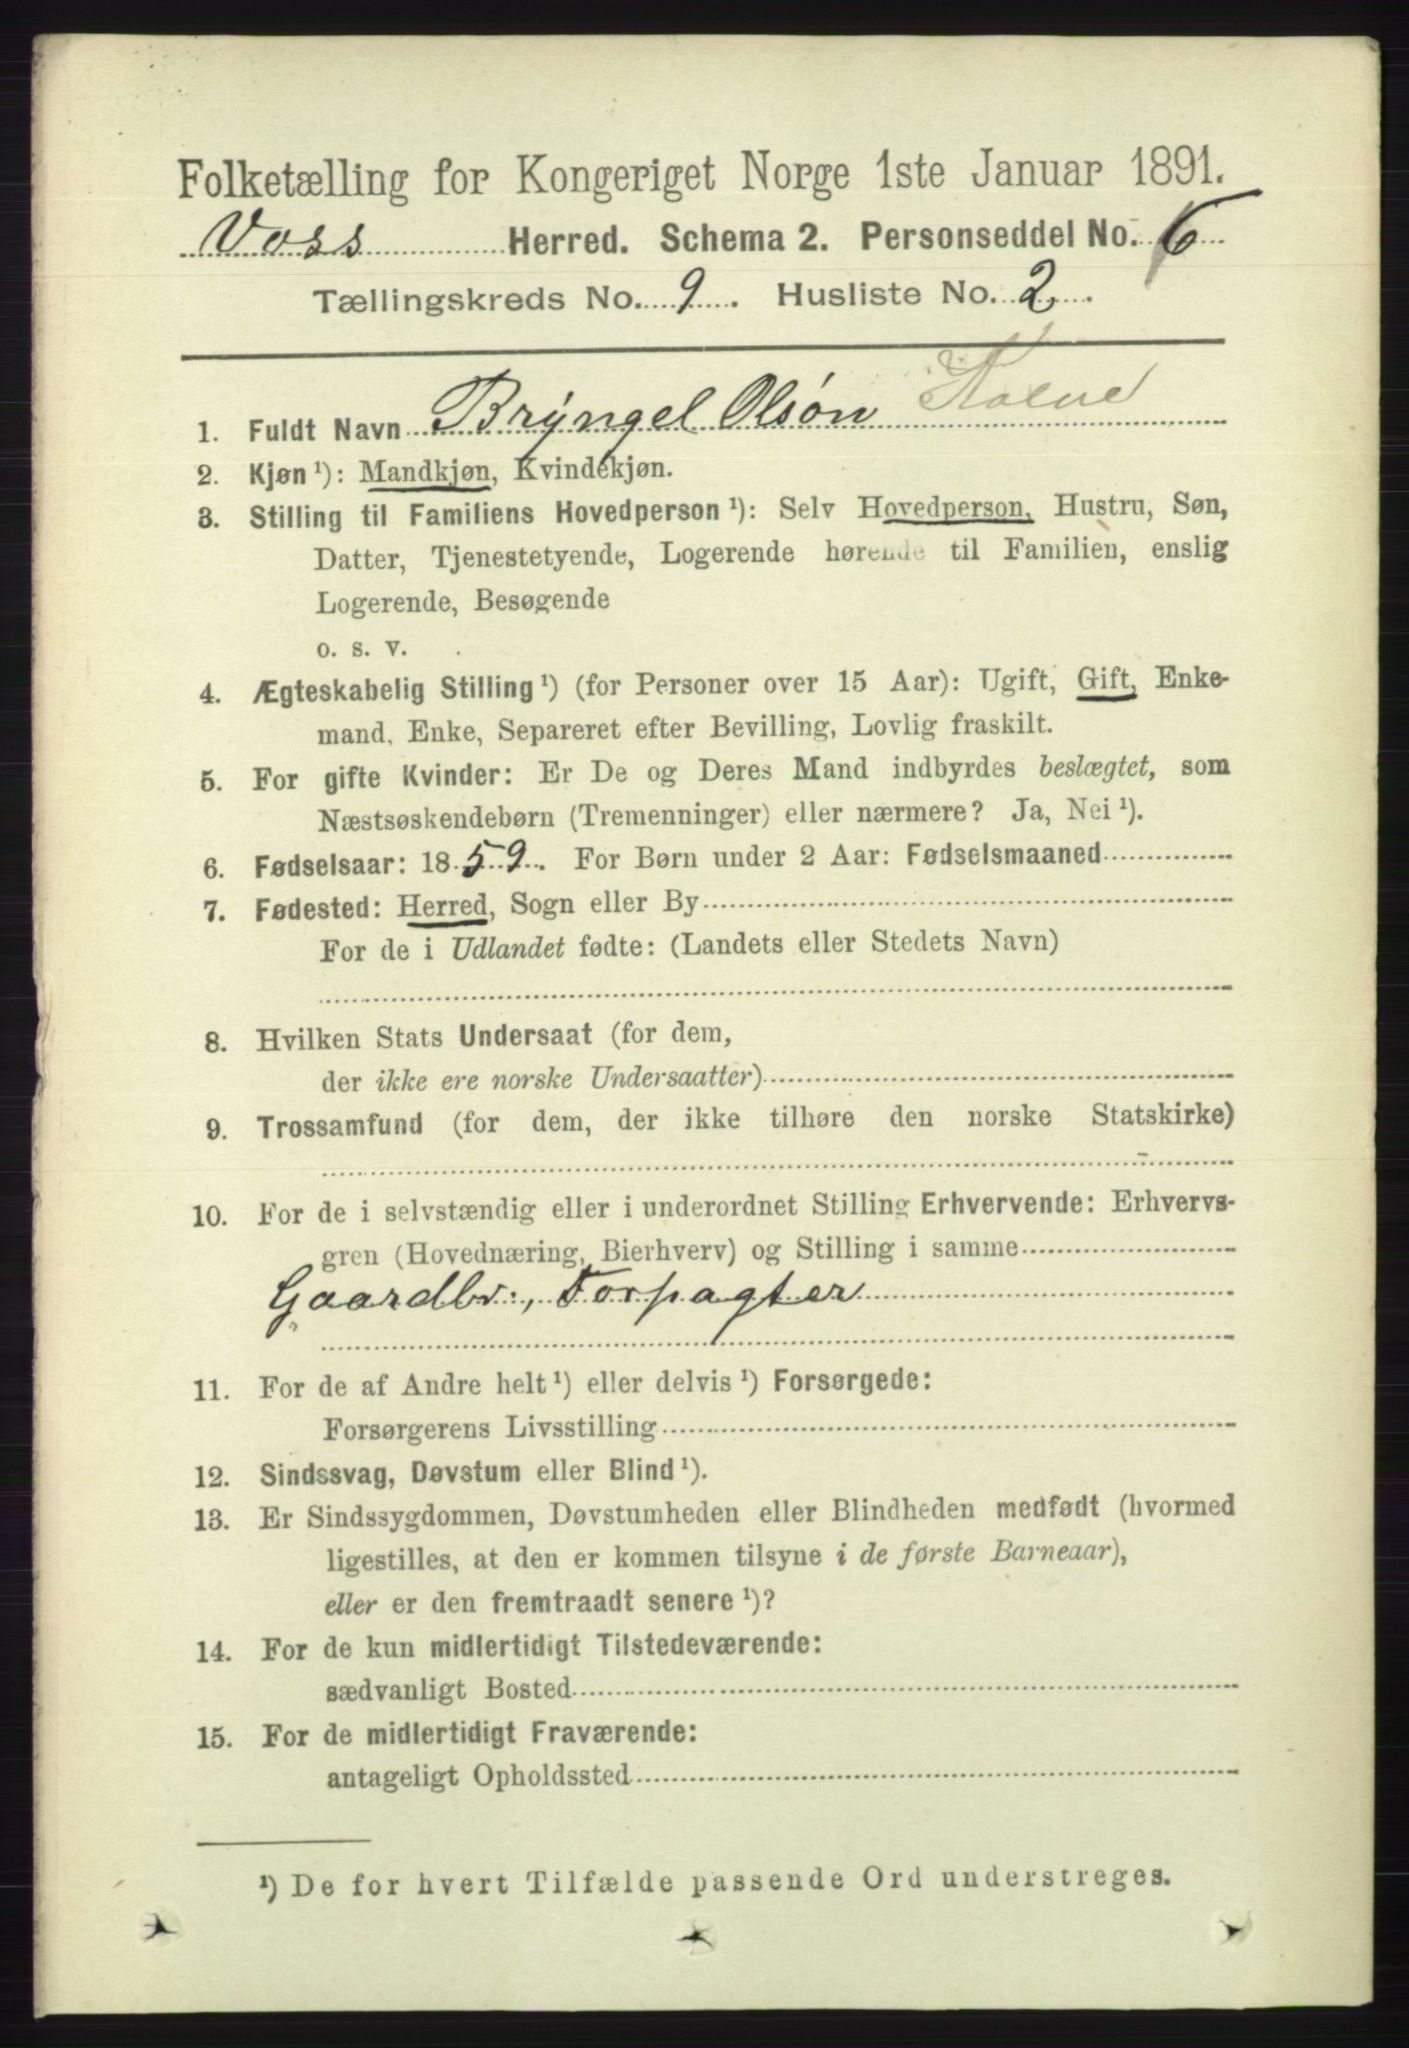 Folketælling for Kongeriget Norge 1ste Januar 1891.
Voss Herred. Schema 2. Personseddel No. 6
Tællingskreds No. 9. Husliste No. 2.
1. Fuldt Navn Bryngel Olsøn
2. Kjøn ¹): Mandkjøn, Kvindekjøn.
3. Stilling til Familiens Hovedperson ¹): Selv Hovedperson, Hustru, Søn,
Datter, Tjenestetyende, Logerende hørende til Familien, enslig
Logerende, Besøgende
o. s. v.
4. Ægteskabelig Stilling ¹) (for Personer over 15 Aar): Ugift, Gift, Enke-
mand, Enke, Separeret efter Bevilling, Lovlig fraskilt.
5. For gifte Kvinder: Er De og Deres Mand indbyrdes beslægtet, som
Næstsøskendebørn (Tremenninger) eller nærmere? Ja, Nei ¹).
6. Fødselsaar: 1859. For Børn under 2 Aar: Fødselsmaaned
7. Fødested: Herred, Sogn eller By
For de i Udlandet fødte: (Landets eller Stedets Navn)
8. Hvilken Stats Undersaat (for dem,
der ikke ere norske Undersaatter)
9. Trossamfund (for dem, der ikke tilhøre den norske Statskirke)
10. For de i selvstændig eller i underordnet Stilling Erhvervende: Erhvervs-
gren (Hovednæring, Bierhverv) og Stilling i samme
Gaardbr., Forpagter
11. For de af Andre helt ¹) eller delvis ¹) Forsørgede:
Forsørgerens Livsstilling
12. Sindssvag, Døvstum eller Blind ¹).
13. Er Sindssygdommen, Døvstumheden eller Blindheden medfødt (hvormed
ligestilles, at den er kommen tilsyne i de første Barneaar),
eller er den fremtraadt senere ¹)?
14. For de kun midlertidigt Tilstedeværende:
sædvanligt Bosted
15. For de midlertidigt Fraværende:
antageligt Opholdssted
¹) De for hvert Tilfælde passende Ord understreges.